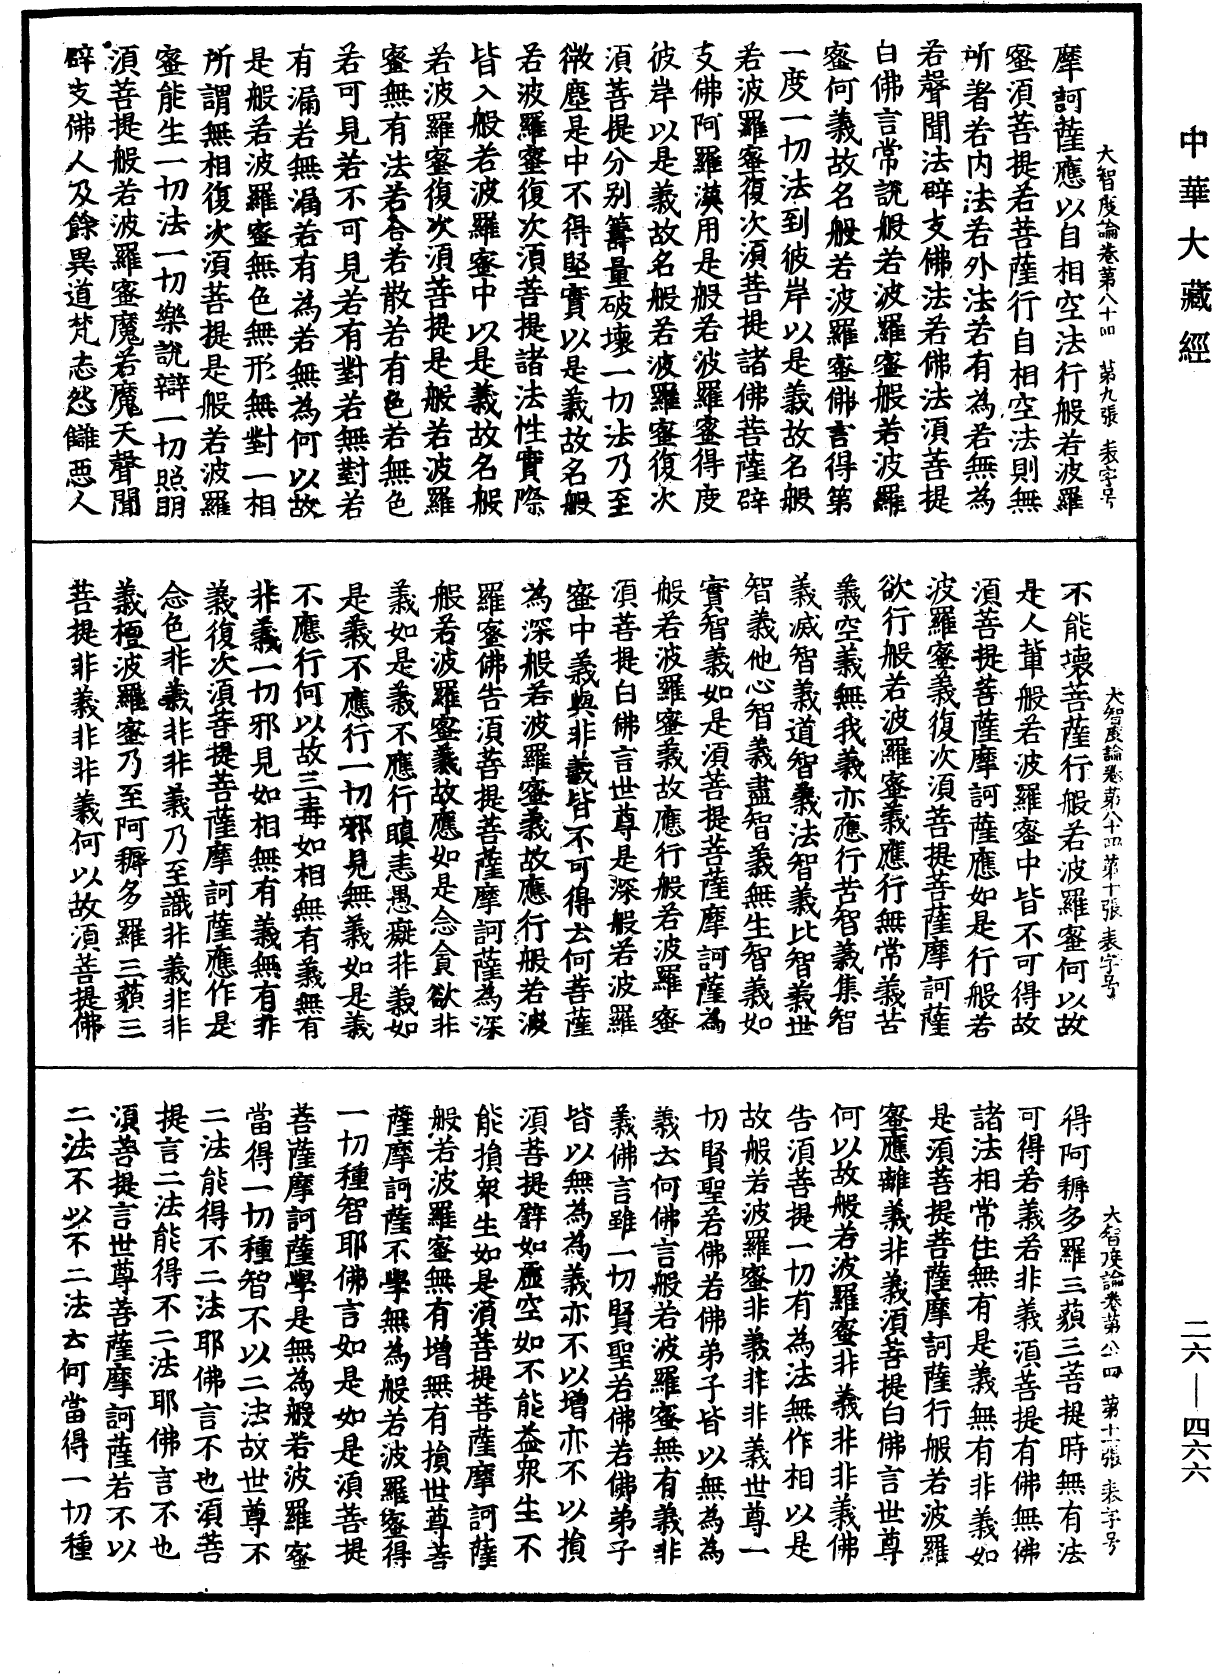 中華大藏經
大智度論卷第八十四 第九張 表字号
摩訶薩應以自相空法行般若波羅
蜜須菩提若菩薩行自相空法則無
所著若內法若外法若有為若無為
若聲聞法辟支佛法若佛法須菩提
白佛言常說般若波羅蜜般若波羅
蜜何義故名般若波羅蜜佛言得第
一度一切法到彼岸以是義故名般
若波羅蜜復次須菩提諸佛菩薩辟
支佛阿羅漢用是般若波羅蜜得度
彼岸以是義故名般若波羅蜜復次
須菩提分別籌量破壞一切法乃至
微塵是中不得堅實以是義故名般
若波羅蜜復次須菩提諸法性實際
皆入般若波羅蜜中以是義故名般
若波羅蜜復次須菩提是般若波羅
蜜無有法若合若散若有色若無色
若可見若不可見若有對若無對若
有漏若無漏若有為若無為何以故
是般若波羅蜜無色無形無對一相
所謂無相復次須菩提是般若波羅
蜜能生一切法一切樂說辯一切照明
須菩提般若波羅蜜魔若魔天聲聞
辟支佛人及餘異道梵志怨讎惡人
大智度論卷第八十四 第十張 表字号
不能壞菩薩行般若波羅蜜何以故
是人輩般若波羅蜜中皆不可得故
須菩提菩薩摩訶薩應如是行般若
波羅蜜義復次須菩提菩薩摩訶薩
欲行般若波羅蜜義應行無常義苦
義空義無我義亦應行苦智義集智
義滅智義道智義法智義比智義世
智義他心智義盡智義無生智義如
實智義如是須菩提菩薩摩訶薩為
般若波羅蜜義故應行般若波羅蜜
須菩提白佛言世尊是深般若波羅
蜜中義與非義皆不可得云何菩薩
為深般若波羅蜜義故應行般若波
羅蜜佛告須菩提菩薩摩訶薩為深
般若波羅蜜義故應如是念貪欲非
義如是義不應行瞋恚愚癡非義如
是義不應行一切邪見無義如是義
不應行何以故三毒如相無有義無有
非義一切邪見如相無有義無有非
義復次須菩提菩薩摩訶薩應作是
念色非義非非義乃至識非義非非
義檀波羅蜜乃至阿耨多羅三藐三
菩提非義非非義何以故須菩提佛
大智度論卷第八十四 第十一張 表字号
得阿耨多羅三藐三菩提時無有法
可得若義若非義須菩提有佛無佛
諸法相常住無有是義無有非義如
是須菩提菩薩摩訶薩行般若波羅
蜜應離義非義須菩提白佛言世尊
何以故般若波羅蜜非義非非義佛
告須菩提一切有為法無作相以是
故般若波羅蜜非義非非義世尊一
切賢聖若佛若佛弟子皆以無為為
義云何佛言般若波羅蜜無有義非
義佛言雖一切賢聖若佛若佛弟子
皆以無為為義亦不以增亦不以損
須菩提譬如虛空如不能益眾生不
能損眾生如是須菩提菩薩摩訶薩
般若波羅蜜無有增無有損世尊菩
薩摩訶薩不學無為般若波羅蜜得
一切種智耶佛言如是如是須菩提
菩薩摩訶薩學是無為般若波羅蜜
當得一切種智不以二法故世尊不
二法能得不二法耶佛言不也須菩
提言二法能得不二法耶佛言不也
須菩提言世尊菩薩摩訶薩若不以
二法不以不二法云何當得一切種
二六—四六六